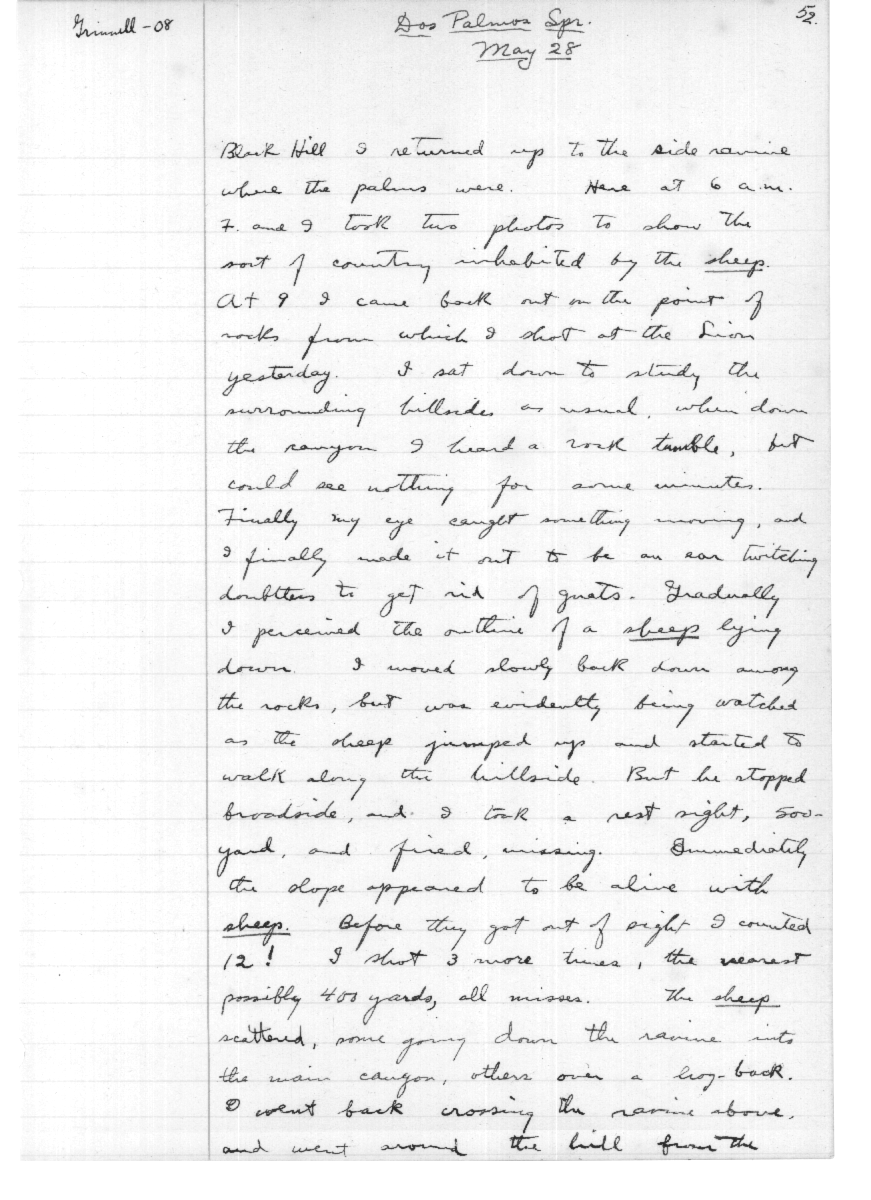 Grinnell - 08
52.
Dos Palmos Spr.
May 28
Black Hill I returned up to the side ravine
where the palms were. Here at 6 a.m.
F. and I took two photos to show the
sort of country inhabited by the sheep.
At 9 I came back out on the point of
rocks from which I shot at the Lion
yesterday. I sat down to study the
surrounding hillsides as usual, when down
the canyon I heard a rock tumble, but
could see nothing for some minutes.
Finally my eye caught something moving, and
I finally made it out to be an ear twitching
doubtless to get rid of gnats. Gradually
I perceived the outline of a sheep lying
down. I moved slowly back down among
the rocks, but was evidently being watched
as the sheep jumped up and started to
walk along the hillside. But he stopped
broadside, and I took a rest sight, 500-
yard, and fired, missing. Immediately
the slope appeared to be alive with
sheep. Before they got out of sight I counted
12! I shot 3 more times, the nearest
possibly 400 yards, all misses. The sheep
scattered, some going down the ravine into
the main canyon, others over a hog-back.
I went back crossing the ravine above,
and went around the hill from the